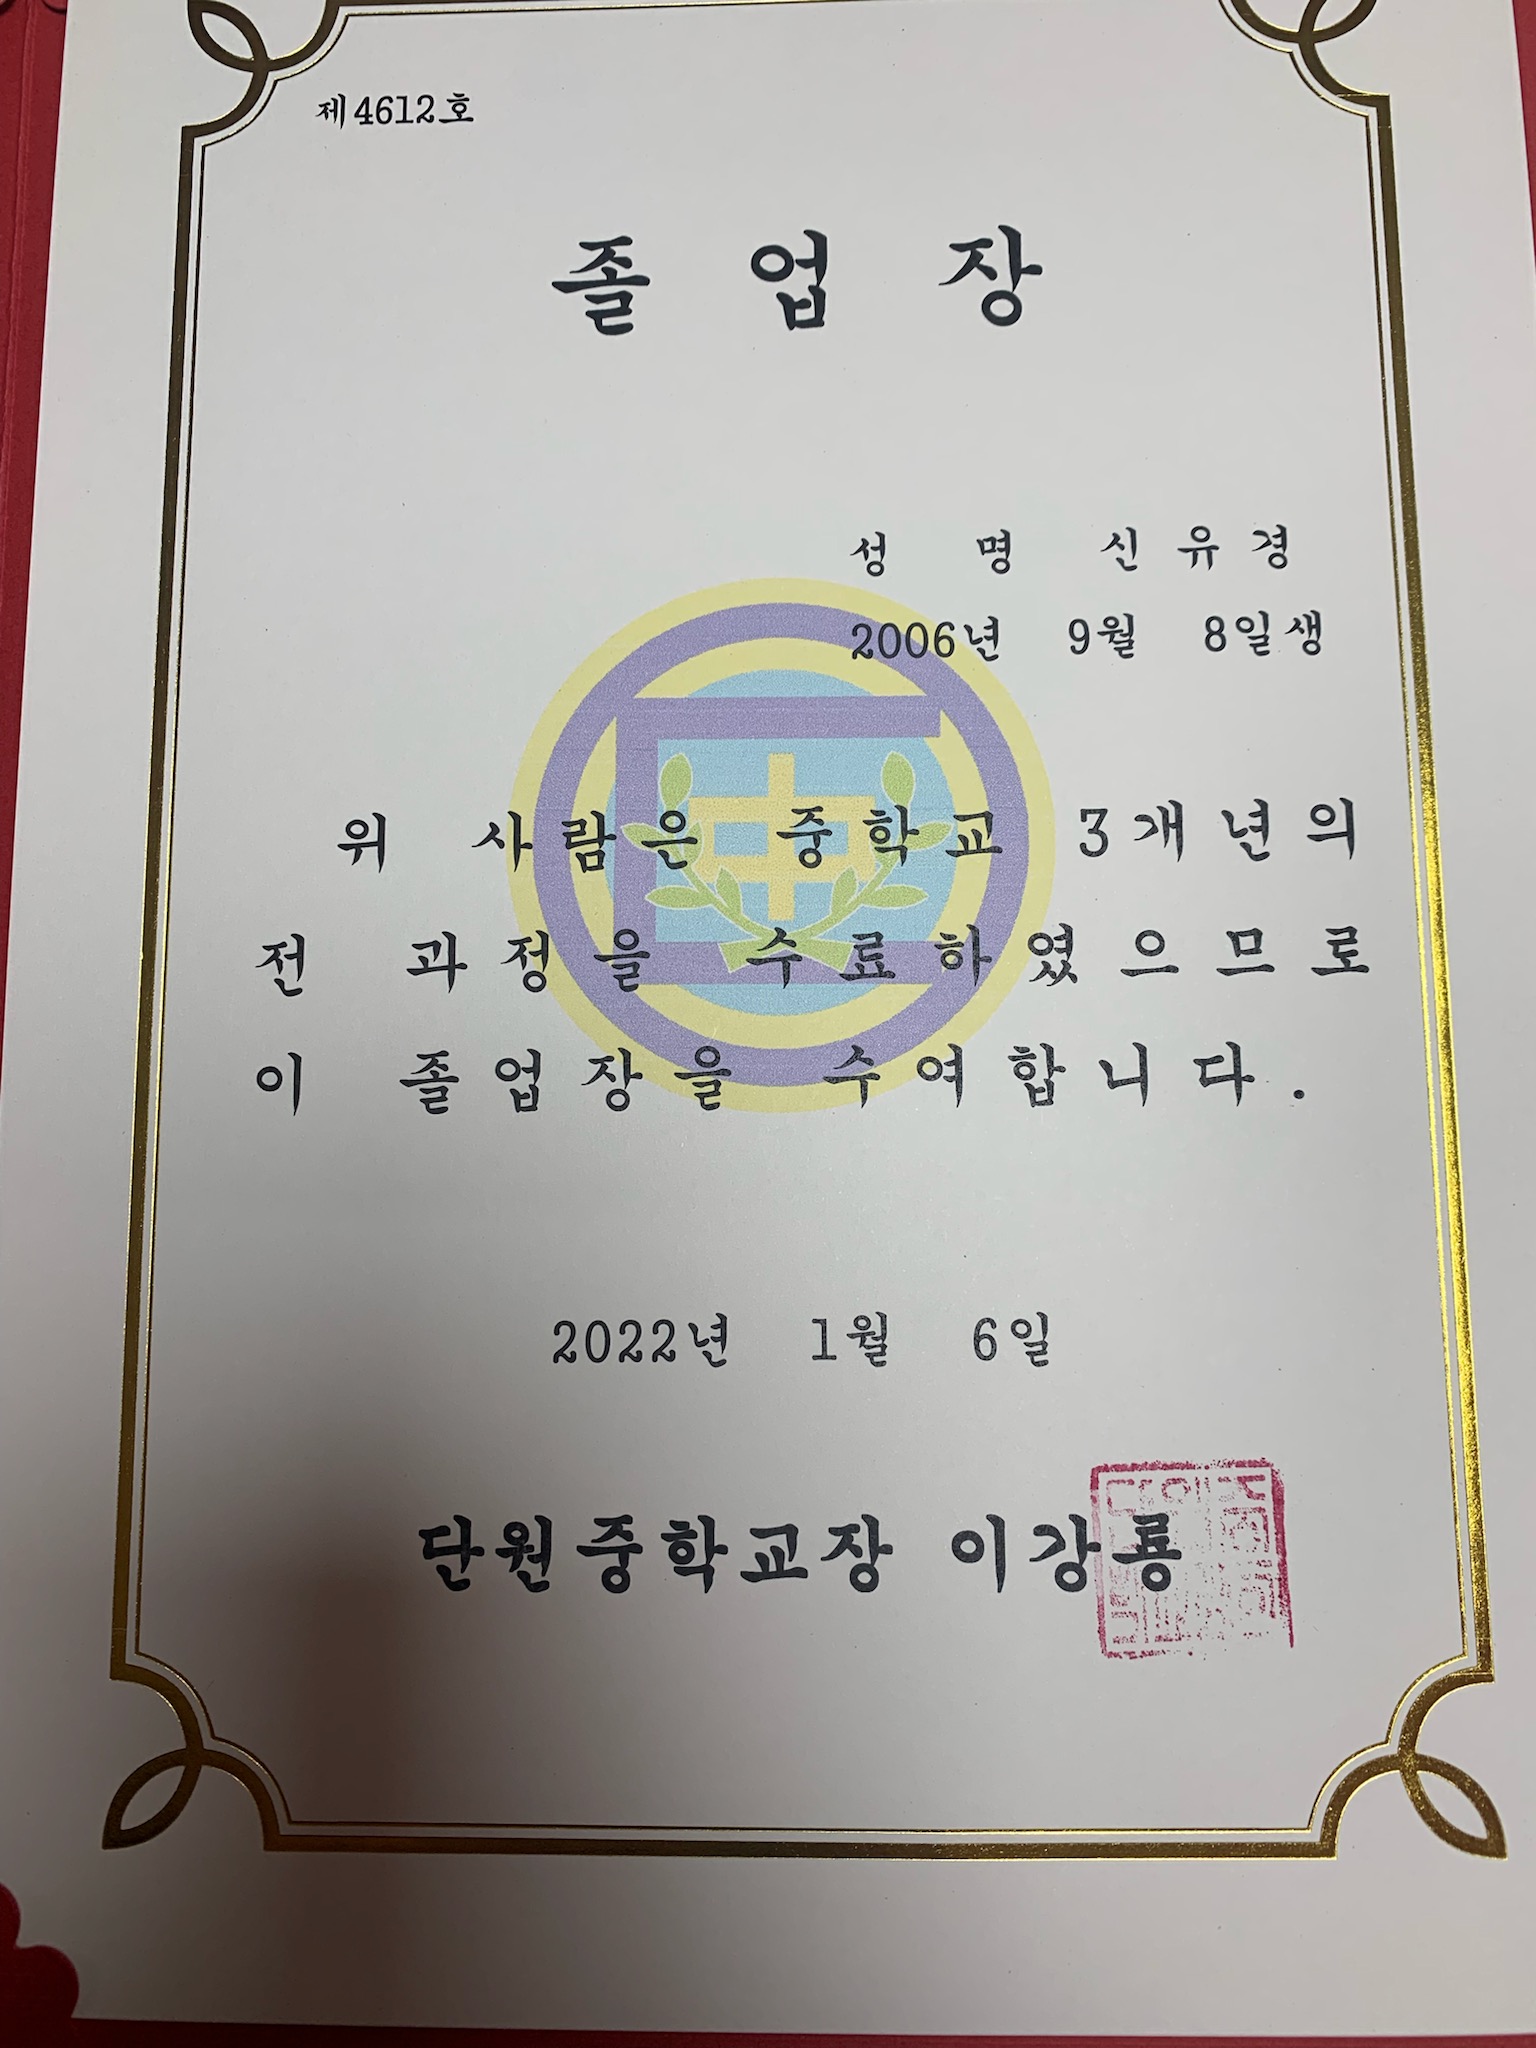 제4612호
졸 업 장
성 명 신유경
2006년 9월 8일생
위 사람은 중학교 3개년의
전 과정을 수료하였으므로
이 졸업장을 수여합니다.
2022년 1월 6일
단원중학교장 이강룡